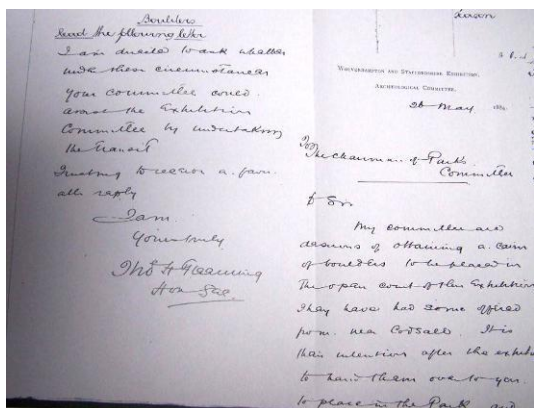 Boulders
Send the following letter
I am directed to ask whether
under these circumstances
your committee could
assist the Exhibition
Committee by undertaking
the transit
Trusting to receive a favor-
able reply
I am
Yours truly
Hon Sec.
WOLVERHAMPTON AND STAFFORDSHIRE EXHIBITION,
ARCHÆOLOGICAL COMMITTEE.
26 May
To
The Chairman of Parks
Committee
D Sir
My committee are
desirous of obtaining a cairn
of boulders to be placed in
the open court of the Exhibition
They have had some offered
from near Codsall. It is
their intention after the exhibi
to hand them over to you
to place in the Park and